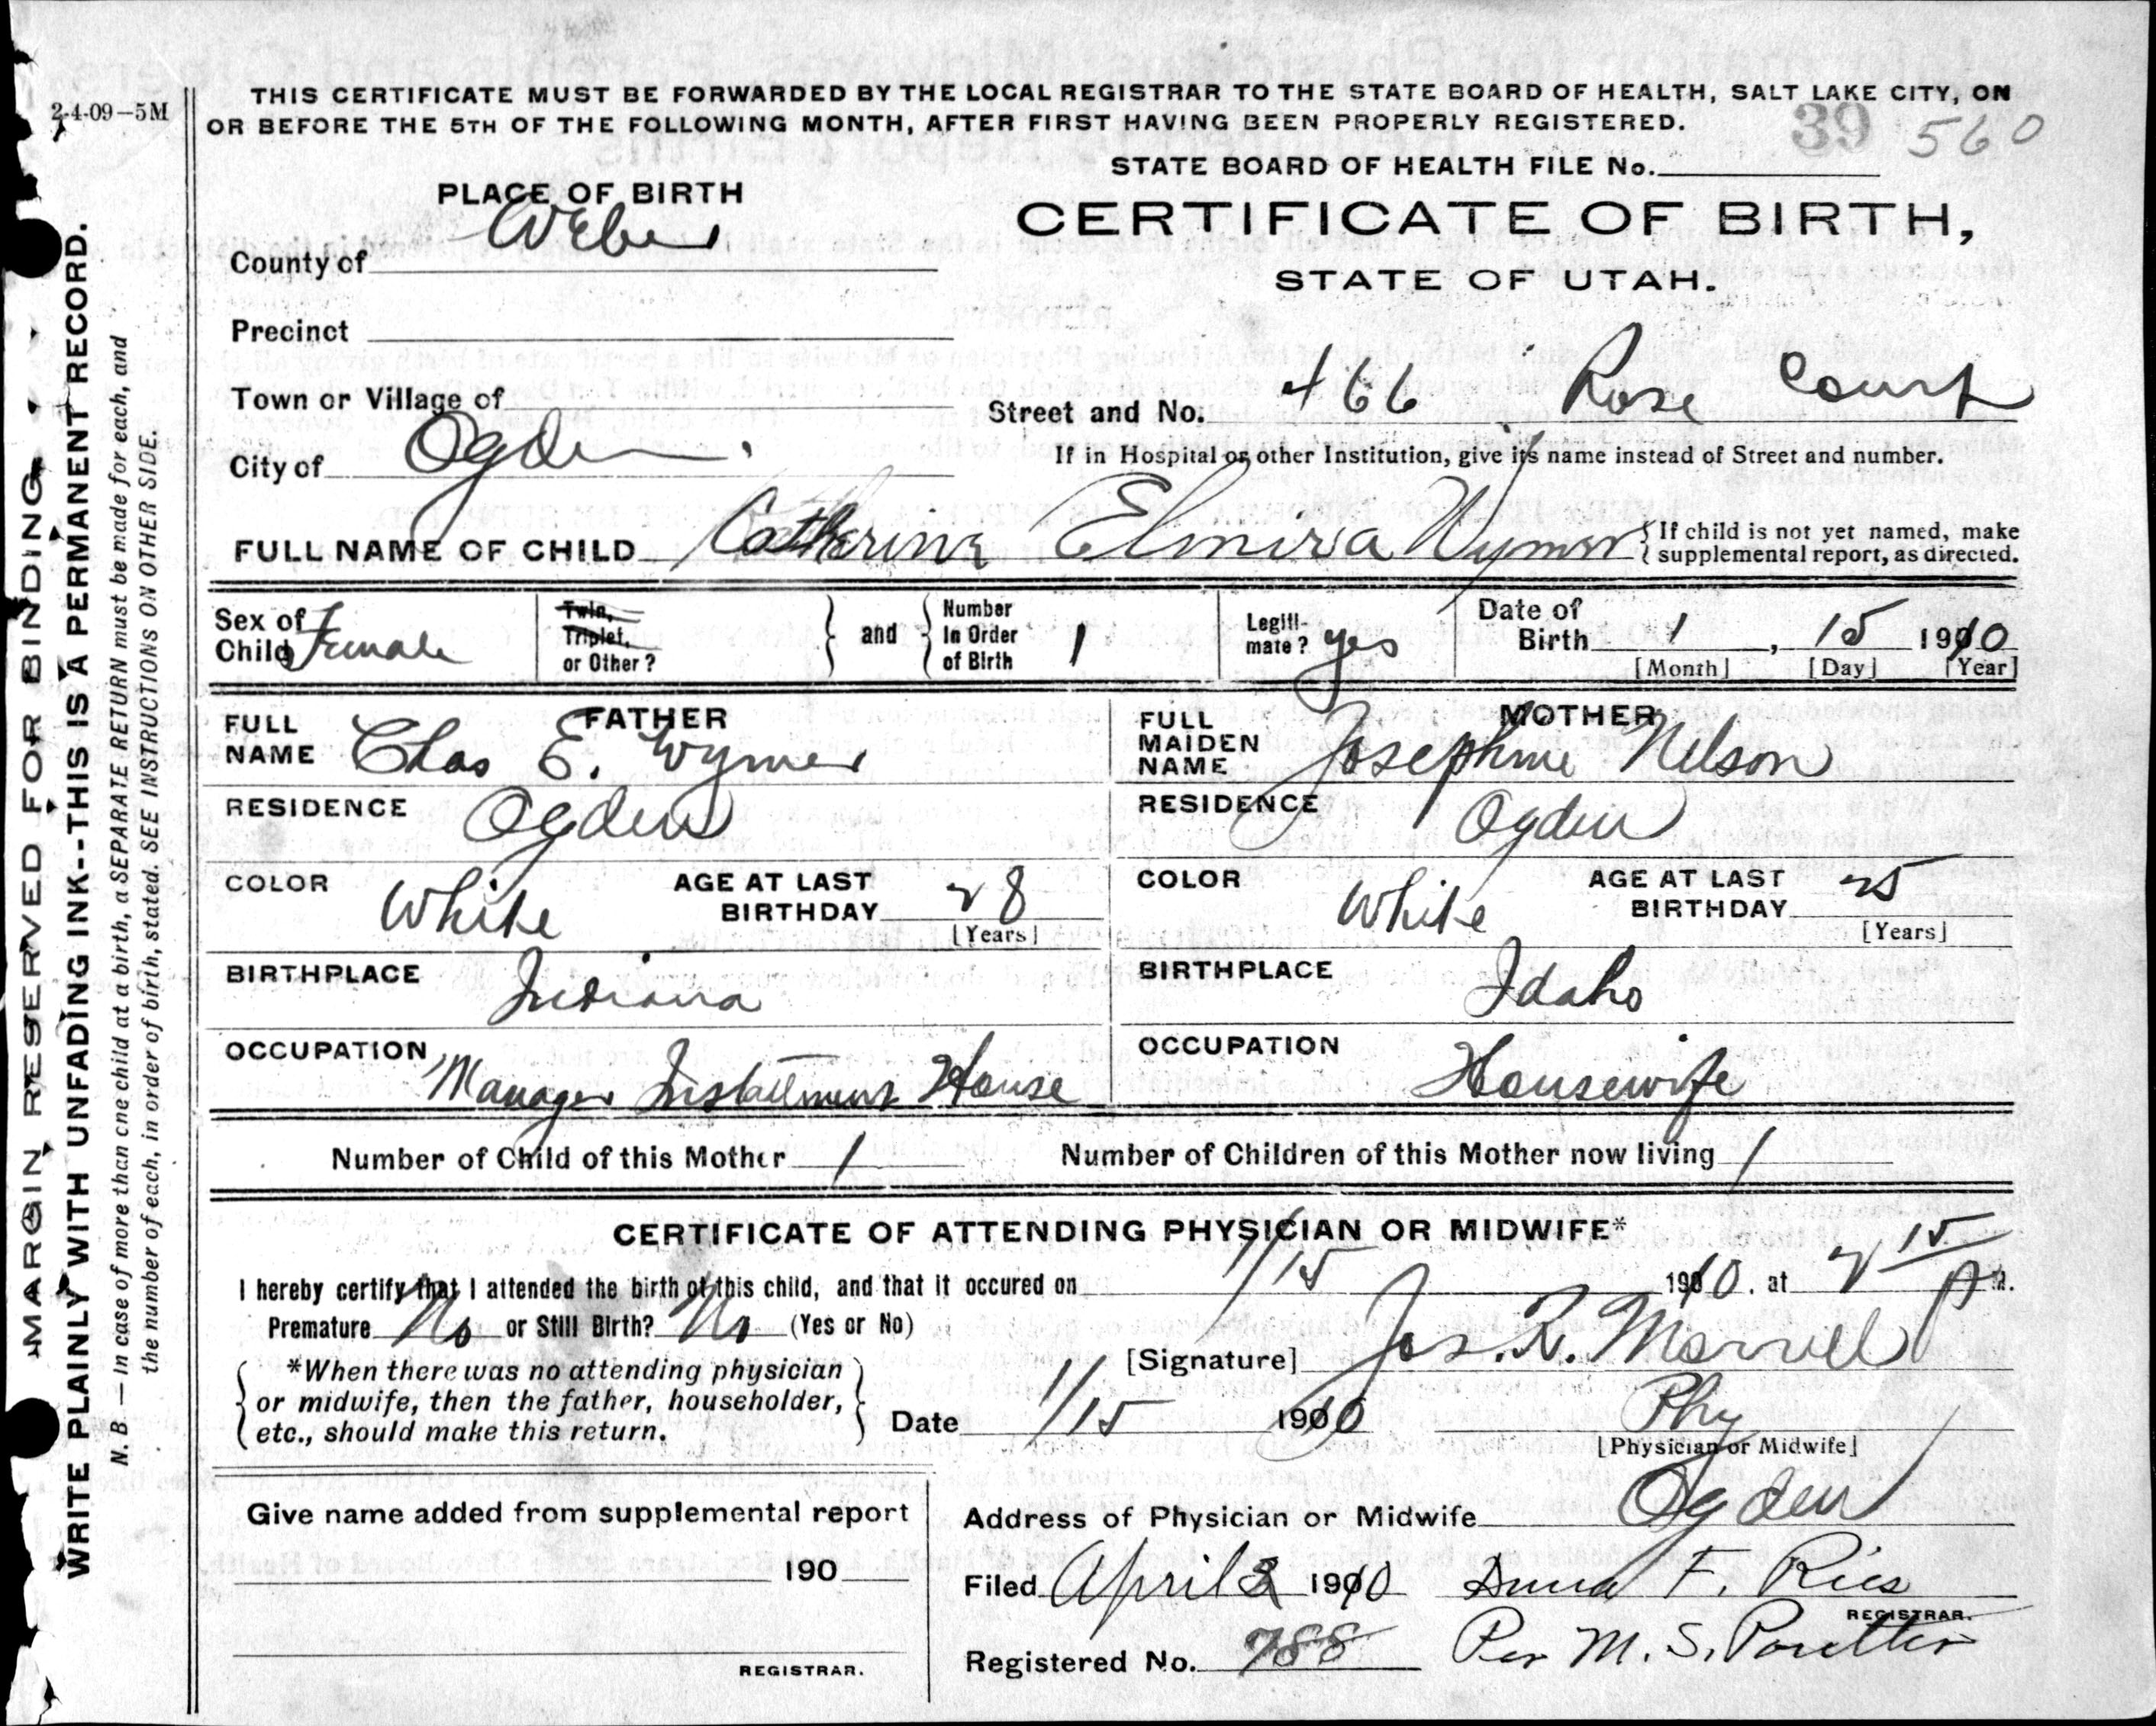 2-4-09—5M
THIS CERTIFICATE MUST BE FORWARDED BY THE LOCAL REGISTRAR TO THE STATE BOARD OF HEALTH, SALT LAKE CITY, ON
OR BEFORE THE 5TH OF THE FOLLOWING MONTH, AFTER FIRST HAVING BEEN PROPERLY REGISTERED.
39 560
STATE BOARD OF HEALTH FILE No.
PLACE OF BIRTH
CERTIFICATE OF BIRTH,
STATE OF UTAH.
County of Weber
Precinct
Town or Village of
Street and No. 466 Rose Court
City of Ogden.
If in Hospital or other Institution, give its name instead of Street and number.
FULL NAME OF CHILD Catherine Elmira Wymer
If child is not yet named, make
supplemental report, as directed.
Sex of Child Female
Twin, Triplet, or Other?
and
Number In Order of Birth 1
Legiti-mate? yes
Date of Birth 1, 15 1910
[Month] [Day] [Year]
FATHER
FULL NAME Chas E. Wymer
RESIDENCE Ogden
COLOR White
AGE AT LAST BIRTHDAY 28
[Years]
BIRTHPLACE Indiana
OCCUPATION Manager Installment House
MOTHER
FULL MAIDEN NAME Josephine Nelson
RESIDENCE Ogden
COLOR White
AGE AT LAST BIRTHDAY 25
[Years]
BIRTHPLACE Idaho
OCCUPATION Housewife
Number of Child of this Mother 1
Number of Children of this Mother now living 1
CERTIFICATE OF ATTENDING PHYSICIAN OR MIDWIFE*
I hereby certify that I attended the birth of this child, and that it occured on 1/15 1910. at 2 15 P M.
Premature No or Still Birth? No (Yes or No)
[Signature] Jos. R. Morrell
*When there was no attending physician
or midwife, then the father, householder,
etc., should make this return.
Date 1/15 1910
Phy
[Physician or Midwife]
Give name added from supplemental report
190
REGISTRAR.
Address of Physician or Midwife Ogden
Filed April 2 1910
F.
REGISTRAR.
Registered No. 788
Per M. S.
MARGIN RESERVED FOR BINDING
WRITE PLAINLY WITH UNFADING INK--THIS IS A PERMANENT RECORD.
N. B.—In case of more than one child at a birth, a SEPARATE RETURN must be made for each, and
the number of each, in order of birth, stated. SEE INSTRUCTIONS ON OTHER SIDE.